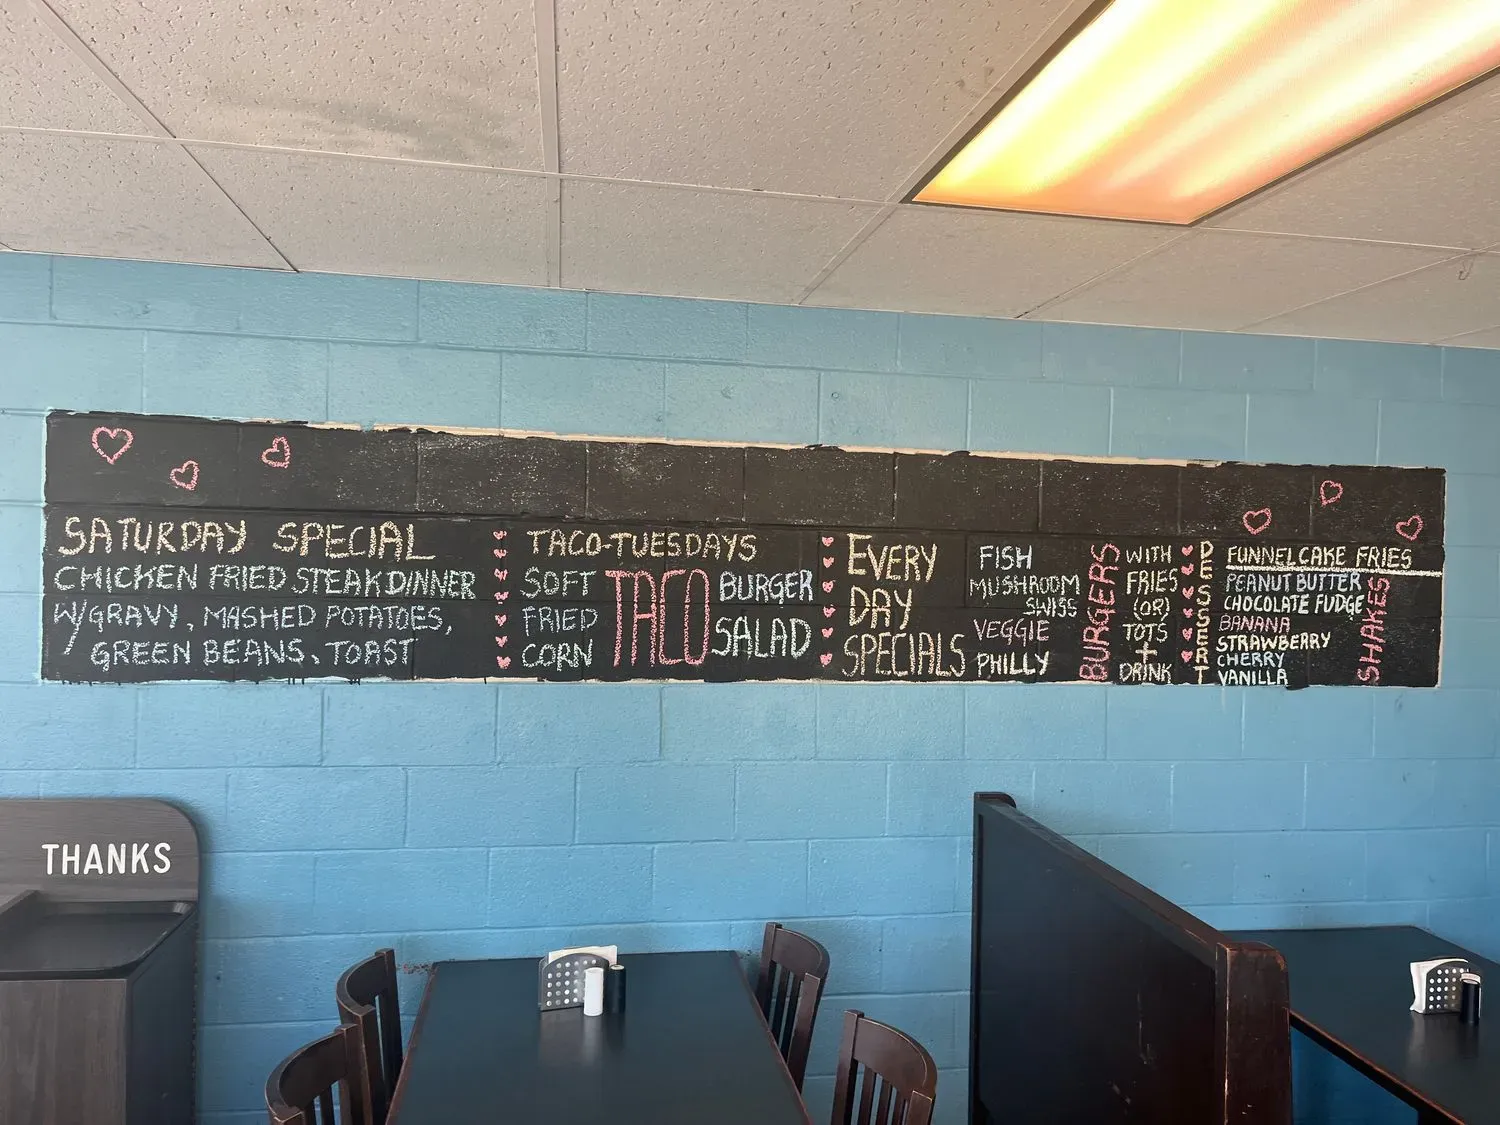 SATURDAY SPECIAL
CHICKEN FRIED STEAK DINNER
W/GRAVY, MASHED POTATOES,
GREEN BEANS, TOAST
TACO-TUESDAYS
SOFT
FRIED
CORN
TACO
BURGER
SALAD
EVERY
DAY
SPECIALS
FISH
MUSHROOM
SWISS
VEGGIE
PHILLY
BURGERS
WITH
FRIES
(OR)
TOTS
+
DRINK
DESSERT
FUNNELCAKE FRIES
PEANUT BUTTER
CHOCOLATE FUDGE
BANANA
STRAWBERRY
CHERRY
VANILLA
SHAKES
THANKS